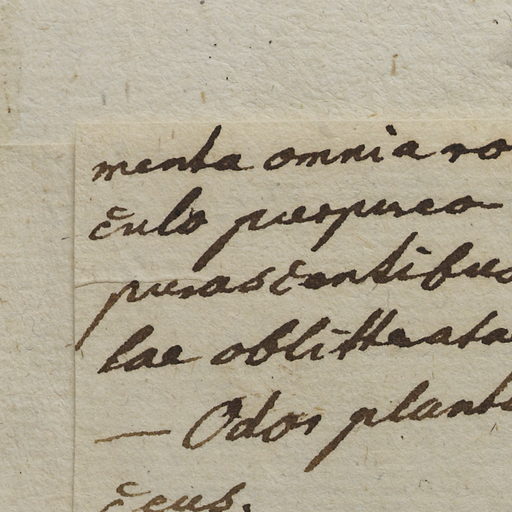 menta omnia ro
culo purpureo
purascentibus
lae oblitterata
— Odor plant
ceus.